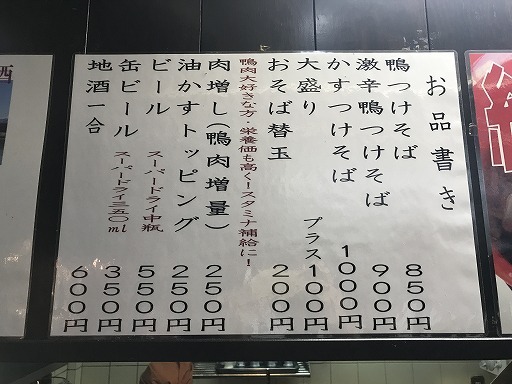 お品書き
鴨つけそば 850円
激辛鴨つけそば 900円
かすつけそば 1000円
大盛り プラス100円
おそば替玉 200円
鴨肉大好きな方・栄養価も高く!スタミナ補給に!
肉増し(鴨肉増量) 250円
油かすトッピング 250円
ビール スーパードライ中瓶 550円
缶ビール スーパードライ三五〇ml 350円
地酒一合 600円
酒